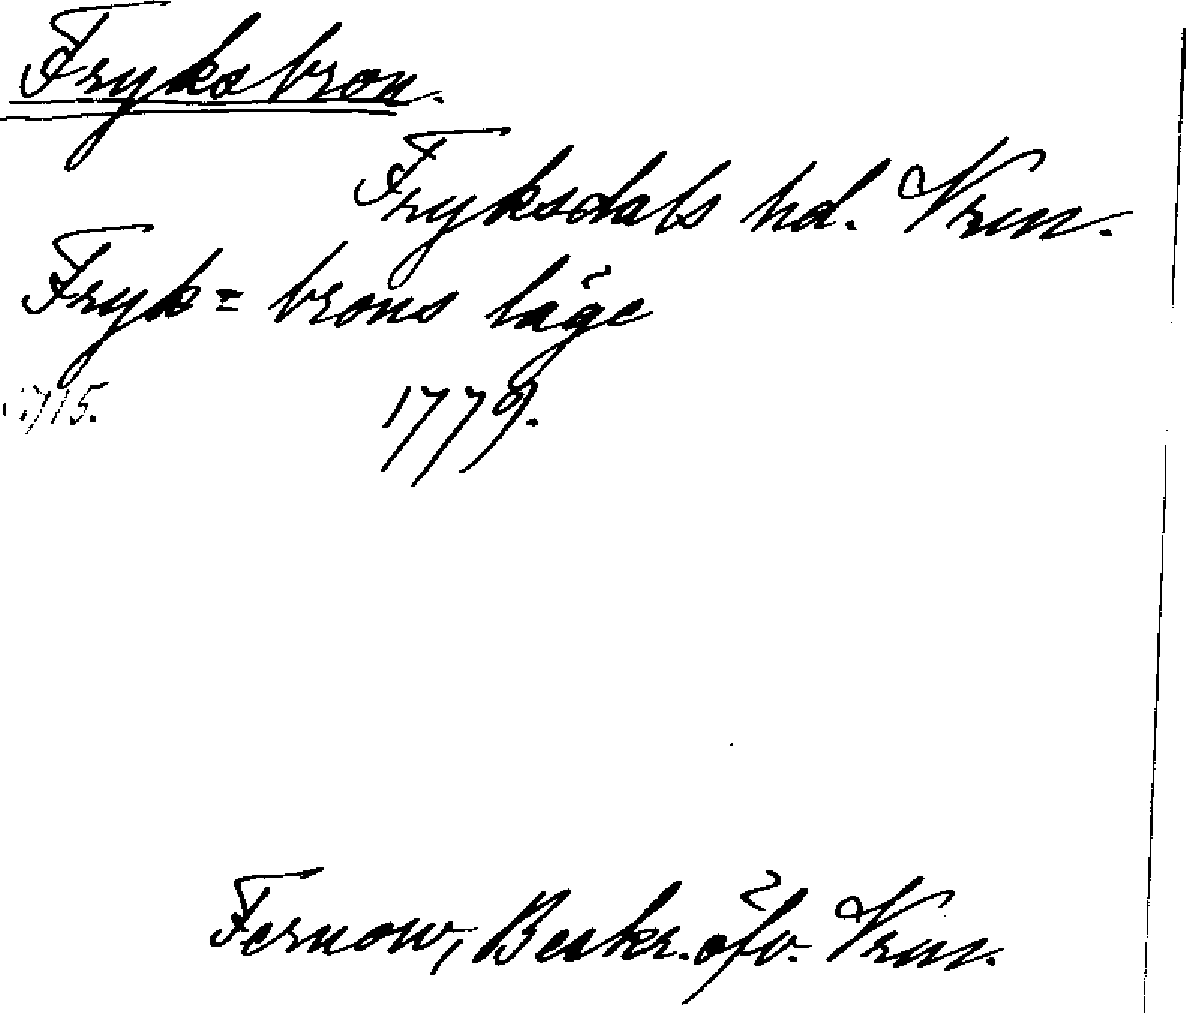 Fryksbron.
Fryksdals hd. Vrm.
Fryk= brons läge
1715. 1779.
Fernow, Beskr. öfv. Vrm.